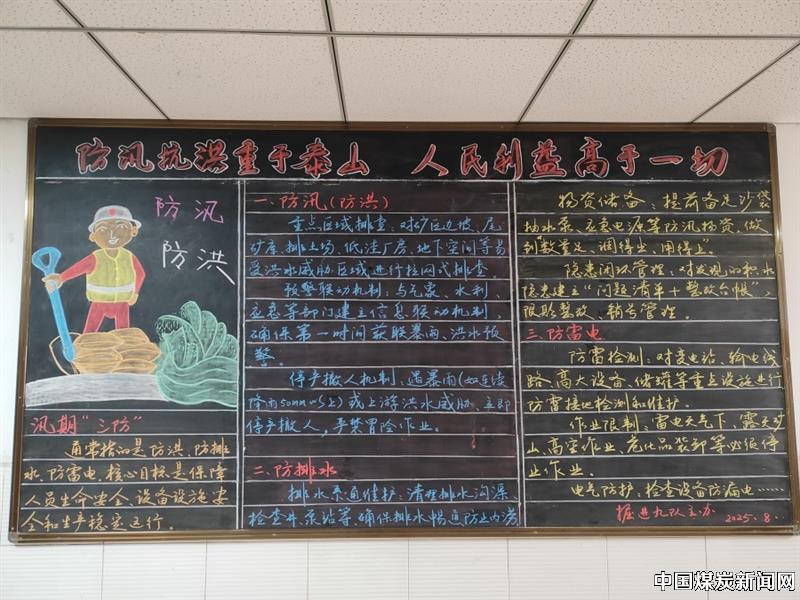 防汛抗洪重于泰山 人民利益高于一切
防汛
防洪
汛期“三防”
通常指的是防洪、防排
水、防雷电，核心目标是保障
人员生命安全、设备设施安
全和生产稳定运行。
一、防汛(防洪)
重点区域排查：对矿区边坡、尾
矿库、排土场、低洼厂房、地下空间等易
受洪水威胁区域进行拉网式排查
预警联动机制：与气象、水利、
应急等部门建立信息联动机制，
确保第一时间获取暴雨、洪水预
警。
停产撤人机制：遇暴雨(如连续
降雨50mm以上)或上游洪水威胁，立即
停产撤人，严禁冒险作业。
二、防排水
排水系通维护：清理排水沟渠、
检查井、泵站等，确保排水畅通防止内涝
物资储备：提前备足沙袋
抽水泵、应急电源等防汛物资，做
到“数量足、调得出、用得上”。
隐患闭环管理：对发现的积水
隐患建立“问题清单+整改台帐”，
限期整改、销号管理。
三、防雷电
防雷检测：对变电站、输电线
路、高大设备、储罐等重点设施进行
防雷接地检测和维护。
作业限制：雷电天气下，露天矿
山、高空作业、危化品装卸等必须停
业作业。
电气防护：检查设备防漏电……
掘进九队主办
2025.8.
中国煤炭新闻网